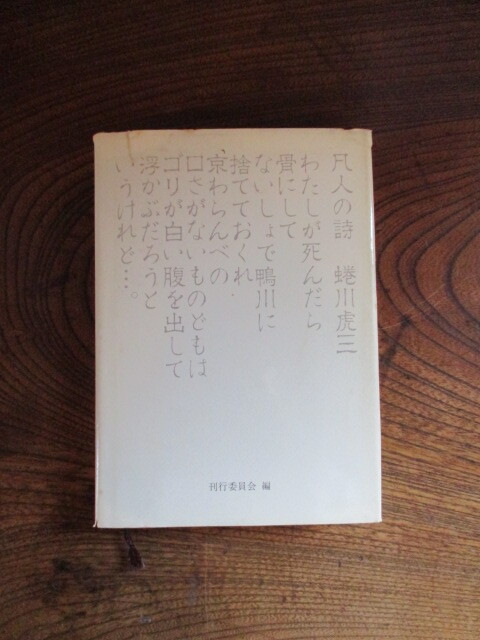 凡人の詩 蜷川虎三
わたしが死んだら
骨にして
ないしょで鴨川に
捨てておくれ
京わらんべの
口さがないものどもは
ゴリが白い腹を出して
浮かぶだろうと
いうけれど…。
刊行委員会 編